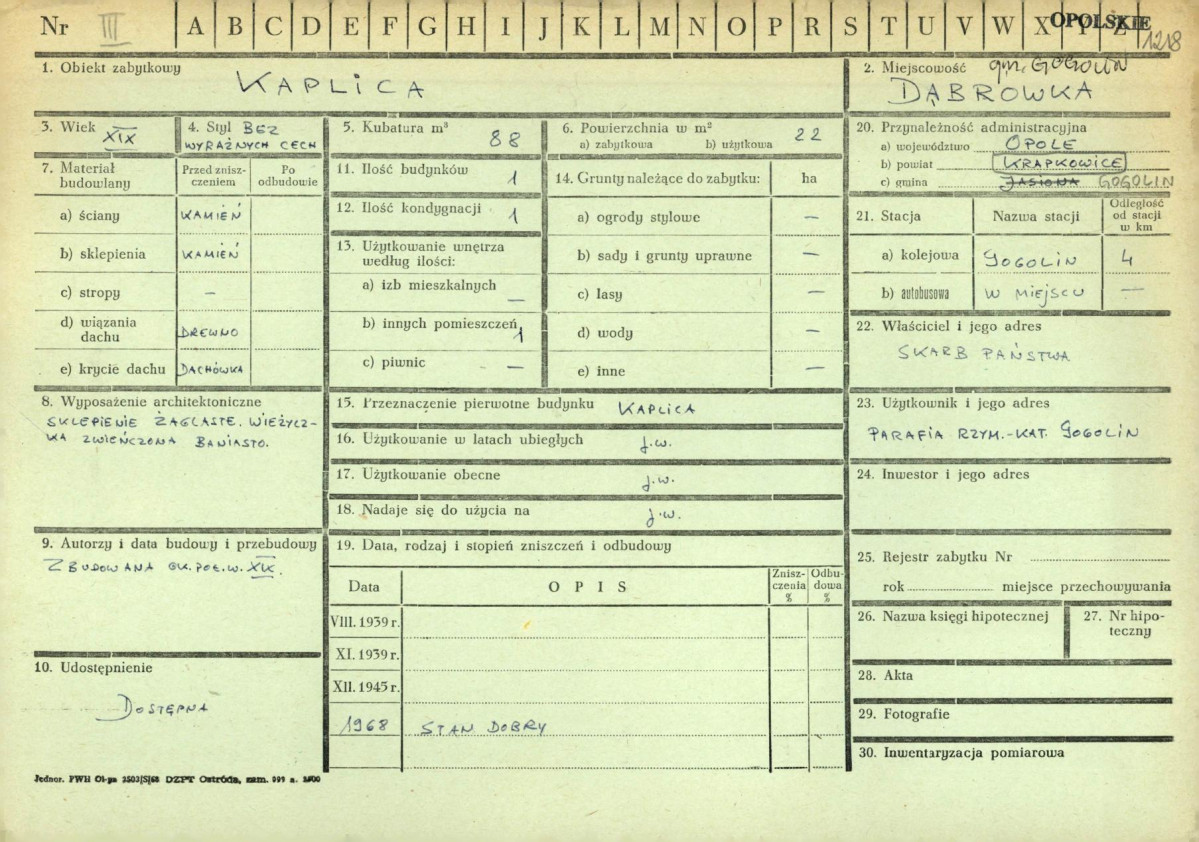 Nr III A B C D E F G H I J K L M N O P R S T U V W X Y Z
OPOLSKIE
1218
1. Obiekt zabytkowy
KAPLICA
2. Miejscowość gm. GOGOLIN
DĄBROWKA
3. Wiek
XIX
4. Styl BEZ
WYRAŹNYCH CECH
5. Kubatura m³
88
6. Powierzchnia w m²
22
a) zabytkowa b) użytkowa
20. Przynależność administracyjna
a) województwo OPOLE
b) powiat KRAPKOWICE
c) gmina JASIONA GOGOLIN
7. Materiał
budowlany
Przed znisz-
czeniem
Po
odbudowie
a) ściany KAMIEŃ
b) sklepienia KAMIEŃ
c) stropy –
d) wiązania
dachu
DREWNO
e) krycie dachu DACHÓWKA
11. Ilość budynków 1
12. Ilość kondygnacji 1
13. Użytkowanie wnętrza
według ilości:
a) izb mieszkalnych –
b) innych pomieszczeń 1
c) piwnic –
14. Grunty należące do zabytku: ha
a) ogrody stylowe –
b) sady i grunty uprawne –
c) lasy –
d) wody –
e) inne –
21. Stacja Nazwa stacji
Odległość
od stacji
w km
a) kolejowa GOGOLIN 4
b) autobusowa W MIEJSCU –
22. Właściciel i jego adres
SKARB PAŃSTWA
8. Wyposażenie architektoniczne
SKLEPIENIE ŻAGLASTE. WIEŻYCZ-
KA ZWIEŃCZONA BANIASTO.
15. Przeznaczenie pierwotne budynku KAPLICA
16. Użytkowanie w latach ubiegłych j.w.
17. Użytkowanie obecne j.w.
18. Nadaje się do użycia na j.w.
23. Użytkownik i jego adres
PARAFIA RZYM.-KAT. GOGOLIN
24. Inwestor i jego adres
9. Autorzy i data budowy i przebudowy
ZBUDOWANA OK. POŁ. W. XIX.
10. Udostępnienie
DOSTĘPNA
19. Data, rodzaj i stopień zniszczeń i odbudowy
Data OPIS
Znisz-
czenia
%
Odbu-
dowa
%
VIII. 1939 r.
XI. 1939 r.
XII. 1945 r.
1968 STAN DOBRY
25. Rejestr zabytku Nr
rok miejsce przechowywania
26. Nazwa księgi hipotecznej
27. Nr hipo-
teczny
28. Akta
29. Fotografie
30. Inwentaryzacja pomiarowa
Jednor. PWH Ol-pa 2503/S/68 DZPT Ostróda, zam. 999 n.